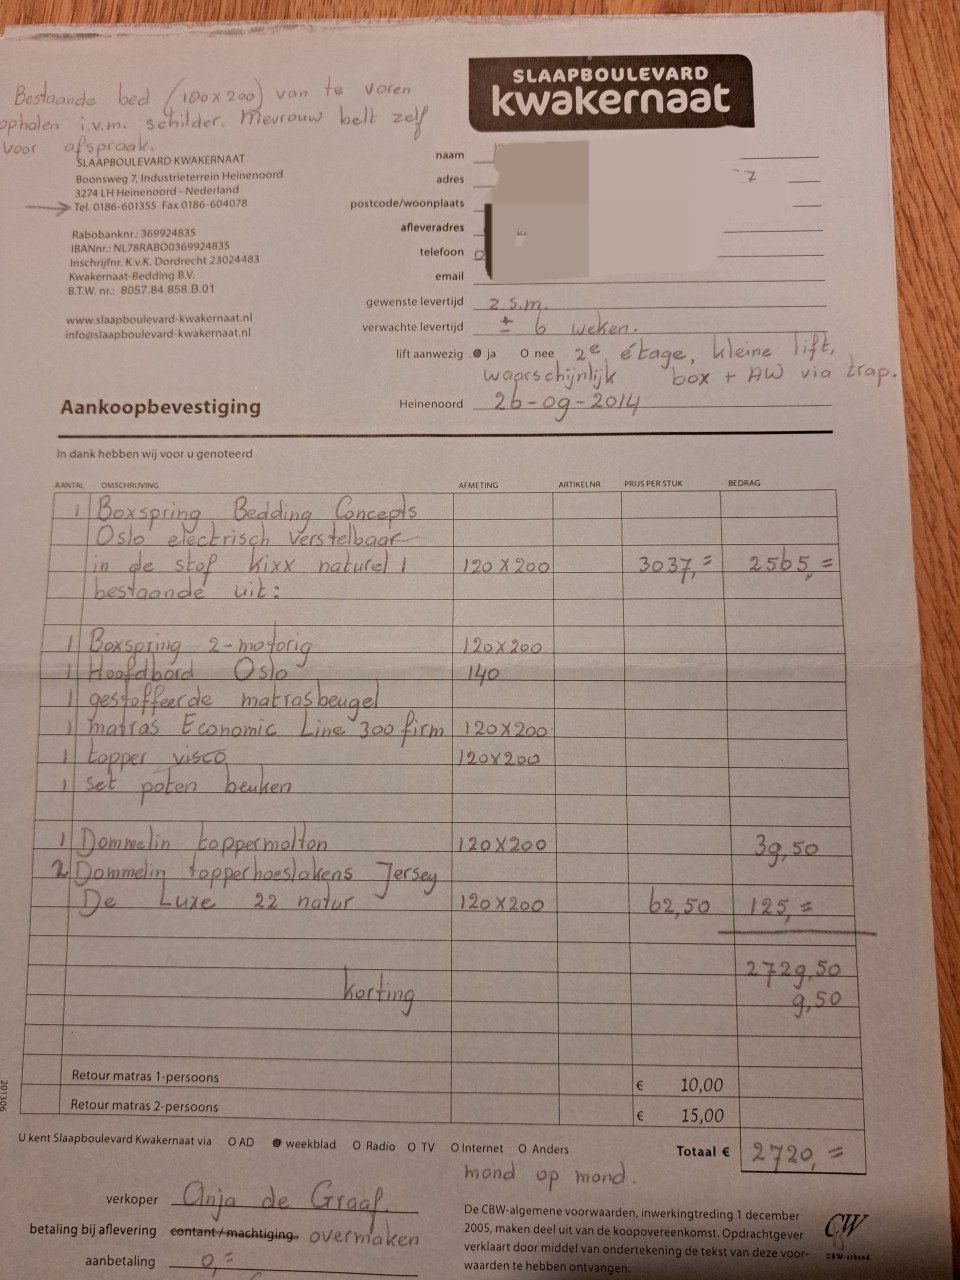 Bestaande bed (180x200) van te voren
ophalen i.v.m. schilder. Mevrouw belt zelf
voor afspraak.
SLAAPBOULEVARD
kwakernaat
SLAAPBOULEVARD KWAKERNAAT
Boonsweg 7, Industrieterrein Heinenoord
3274 LH Heinenoord - Nederland
Tel. 0186-601355 Fax 0186-604078
Rabobanknr.: 369924835
IBANnr.: NL78RABO0369924835
Inschrijfnr. K.v.K. Dordrecht 23024483
Kwakernaat-Bedding B.V.
B.T.W. nr.: 8057.84.858.B.01
www.slaapboulevard-kwakernaat.nl
info@slaapboulevard-kwakernaat.nl
naam
adres 7
postcode/woonplaats
afleveradres
telefoon 0
email
gewenste levertijd z.s.m.
verwachte levertijd ± 6 weken.
lift aanwezig ja O nee 2e étage, kleine lift,
waarschijnlijk box + AW via trap.
Heinenoord 26-09-2014
Aankoopbevestiging
In dank hebben wij voor u genoteerd
AANTAL OMSCHRIJVING AFMETING ARTIKELNR PRIJS PER STUK BEDRAG
1 Boxspring Bedding Concepts
Oslo electrisch verstelbaar
in de stof Kixx naturel 1 120x200 3037,= 2565,=
bestaande uit:
1 Boxspring 2-motorig 120x200
1 Hoofdbord Oslo 140
1 gestoffeerde matrasbeugel
1 matras Economic Line 300 firm 120x200
1 topper visco 120x200
1 set poten beuken
1 Dommelin toppermolton 120x200 39,50
2 Dommelin topperhoeslakens Jersey
De Luxe 22 natur 120x200 62,50 125,=
2729,50
korting 9,50
Retour matras 1-persoons € 10,00
Retour matras 2-persoons € 15,00
201306
U kent Slaapboulevard Kwakernaat via O AD weekblad O Radio O TV O Internet O Anders Totaal € 2720,=
mond op mond.
verkoper Anja de Graaf.
betaling bij aflevering contant / machtiging overmaken
aanbetaling 0,=
De CBW-algemene voorwaarden, inwerkingtreding 1 december
2005, maken deel uit van de koopovereenkomst. Opdrachtgever
verklaart door middel van ondertekening de tekst van deze voor-
waarden te hebben ontvangen.
CW
CBW-erkend